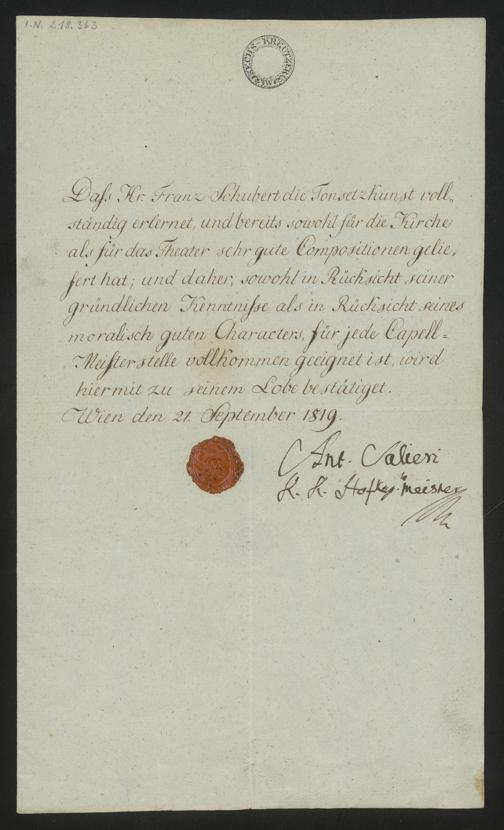 I.N. 218.363
SECHS-KREUTZER
Daſs Hr. Franz Schubert die Tonsetzkunst voll„
ständig erlernet, und bereits sowohl für die Kirche
als für das Theater sehr gute Compositionen gelie„
fert hat; und daher, sowohl in Rücksicht seiner
gründlichen Kenntniſse als in Rücksicht seines
moralisch guten Characters, für jede Capell=
Meiſterstelle vollkommen geeignet ist, wird
hiermit zu seinem Lobe bestätiget.
Wien den 21. September 1819.
Ant. Salieri
K. K. Hofkap.meister